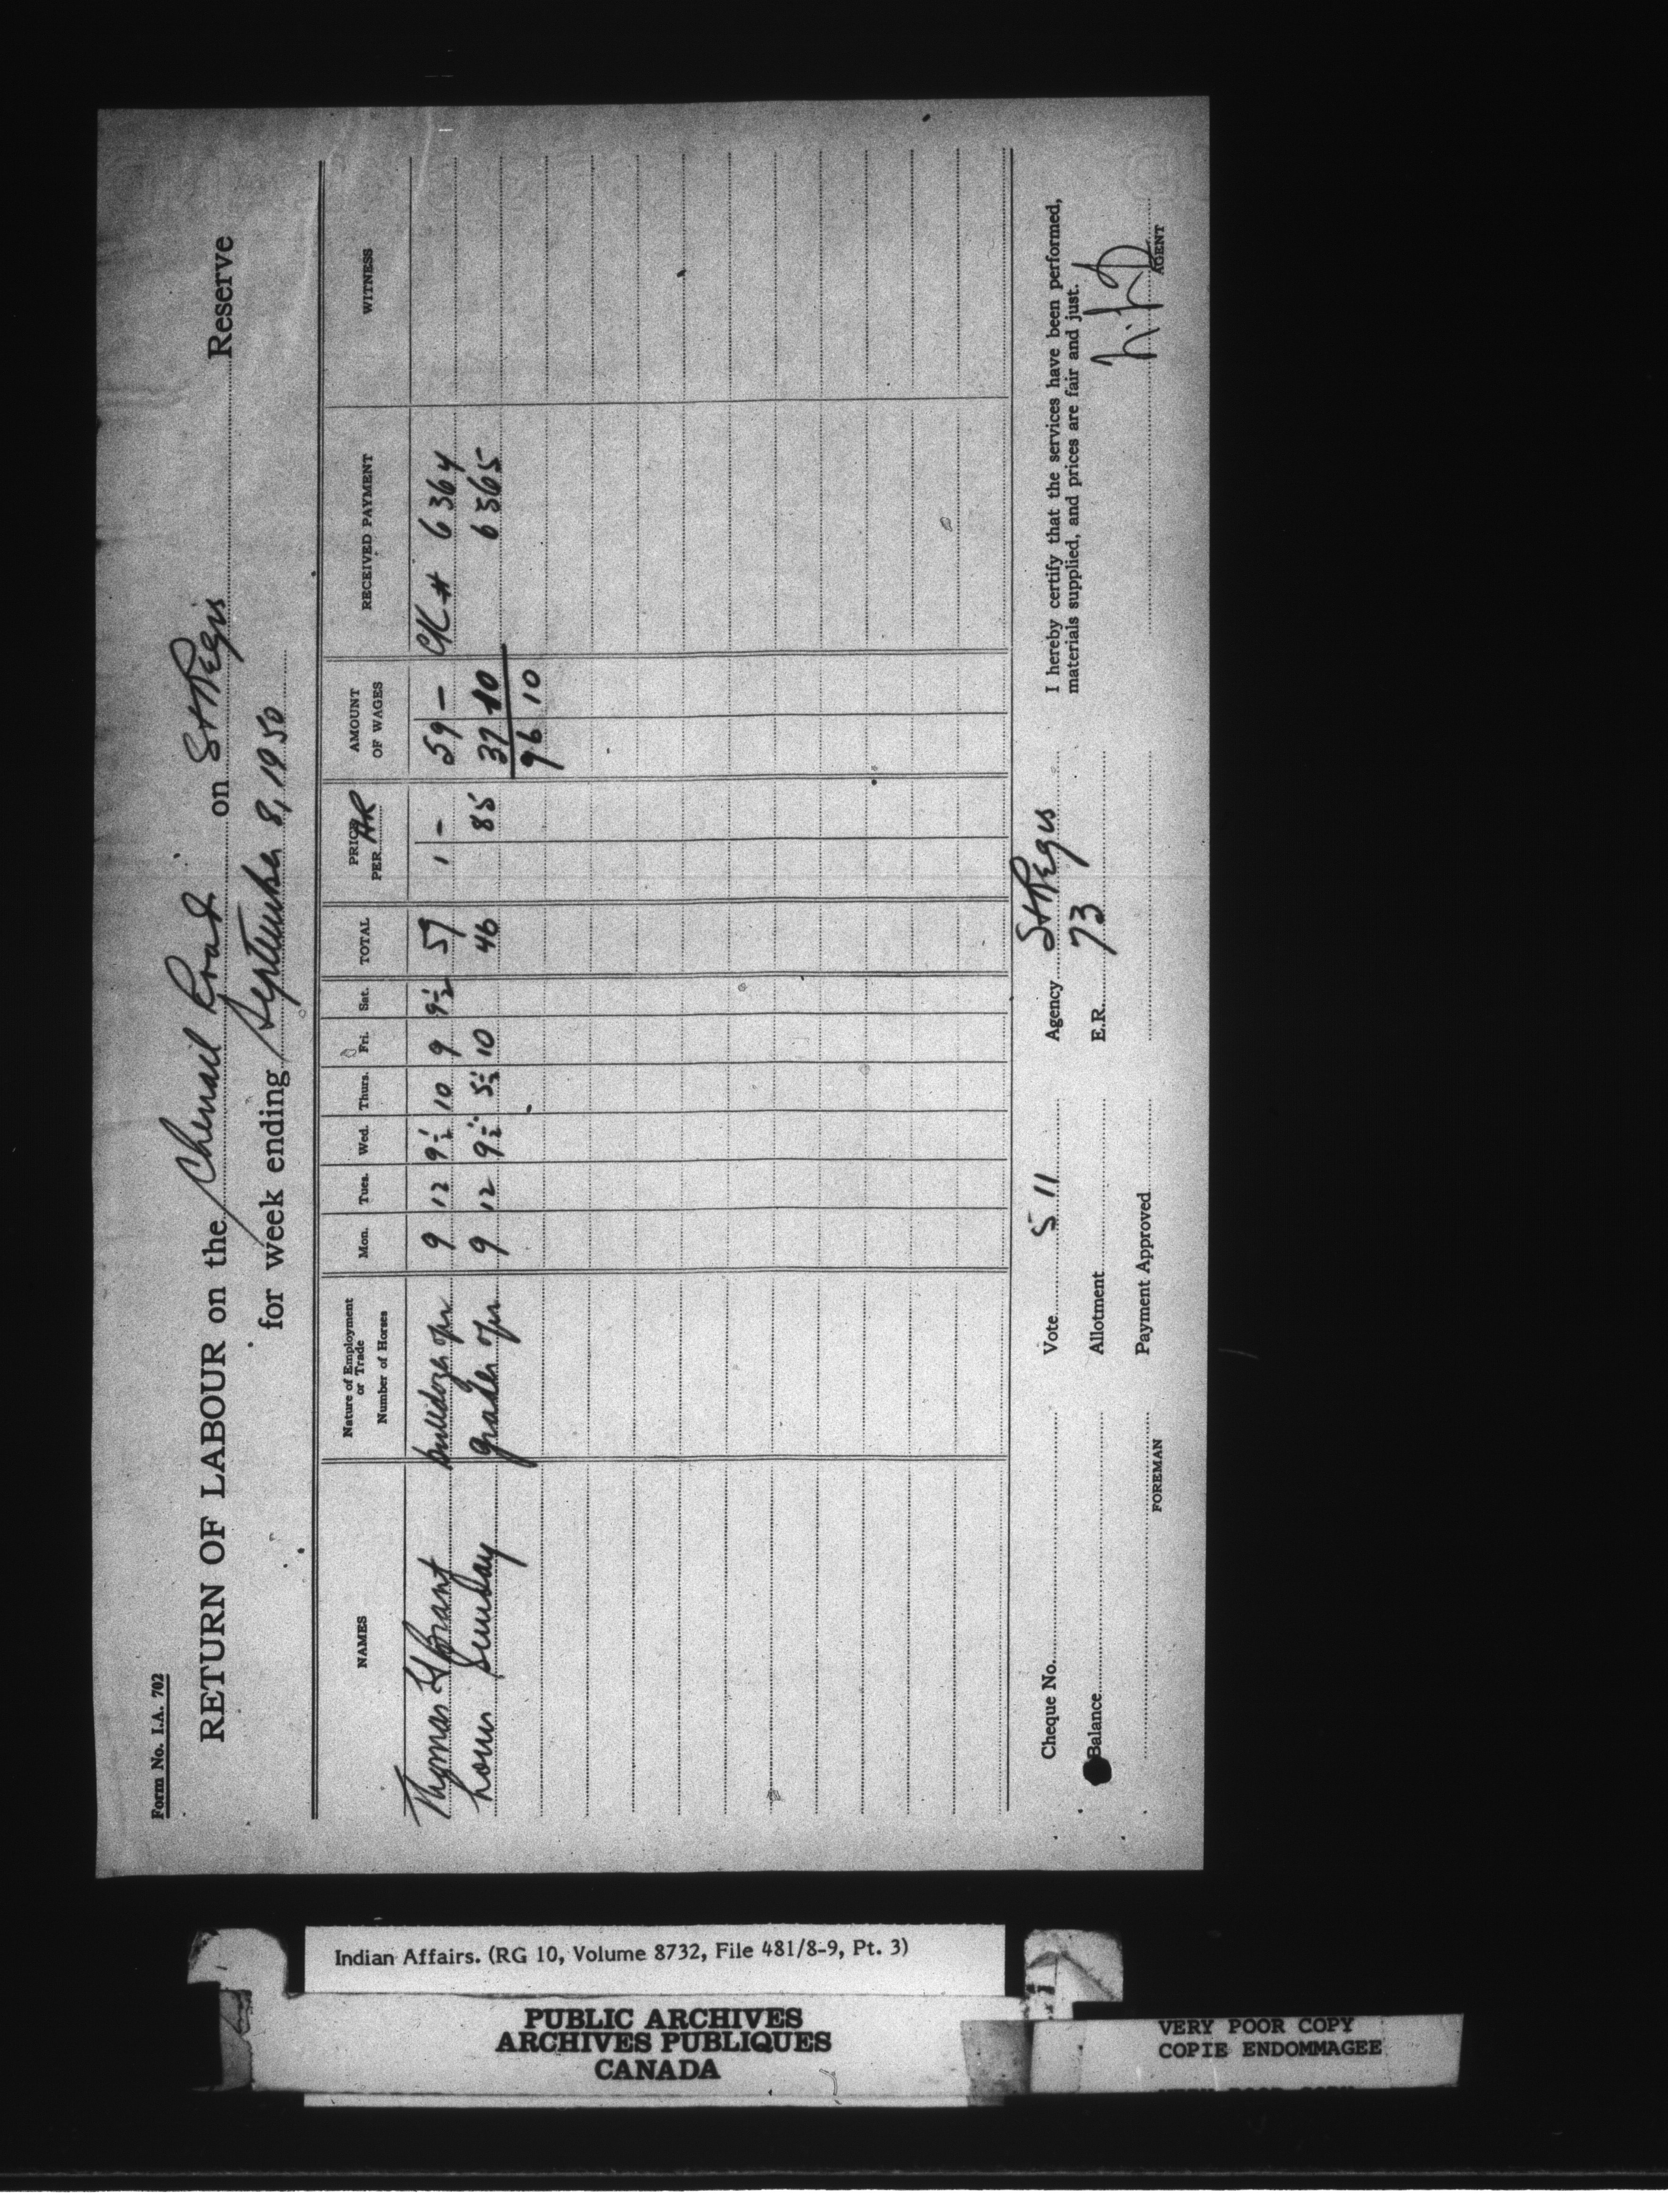 Form No. I.A. 702
RETURN OF LABOUR on the Chenail Road on St Regis Reserve
for week ending September 8, 1950
NAMES Nature of Employment or Trade Number of Horses Mon. Tues. Wed. Thurs. Fri. Sat. TOTAL PRICE PER HR AMOUNT OF WAGES RECEIVED PAYMENT WITNESS
Thomas H Brant bulldozer opr 9 12 9½ 10 9 9½ 59 1 - 59 - CK # 6364
Louis Sunday grader opr 9 12 9½ 5½ 10 46 85 37 10 6365
96 10
Cheque No. Vote 511 Agency St Regis I hereby certify that the services have been performed,
materials supplied, and prices are fair and just.
Balance Allotment E.R. 73
Payment Approved
FOREMAN AGENT
Indian Affairs. (RG 10, Volume 8732, File 481/8-9, Pt. 3)
PUBLIC ARCHIVES
ARCHIVES PUBLIQUES
CANADA
VERY POOR COPY
COPIE ENDOMMAGEE